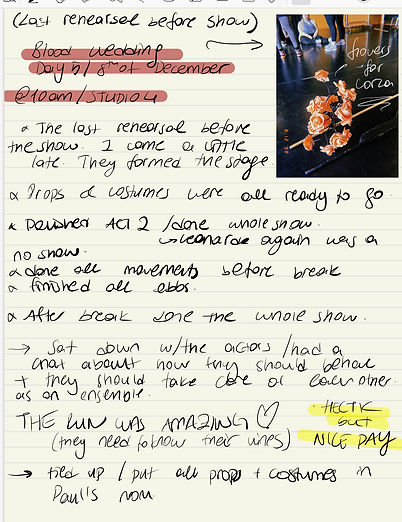 (Last rehearsal before show)
Blood wedding
Day 5 / 8th of December
@10am / STUDIO 4
flowers
for
Lorca
The last rehearsal before
the show. I came a little
late. They formed the stage.
Props & costumes were all ready to go.
Polished ACT 2 / done whole show.
Leonardo again was a
no show.
done all movements before break
finished all
After break done the whole show.
→ Sat down w/ the actors / had a
chat about how they should behave
+ they should take care of each other
as an ensemble.
THE RUN WAS AMAZING ♡
(they need to know their lines)
HECTIC
but
NICE DAY
→ tied up / put all props + costumes in
Paul's room.